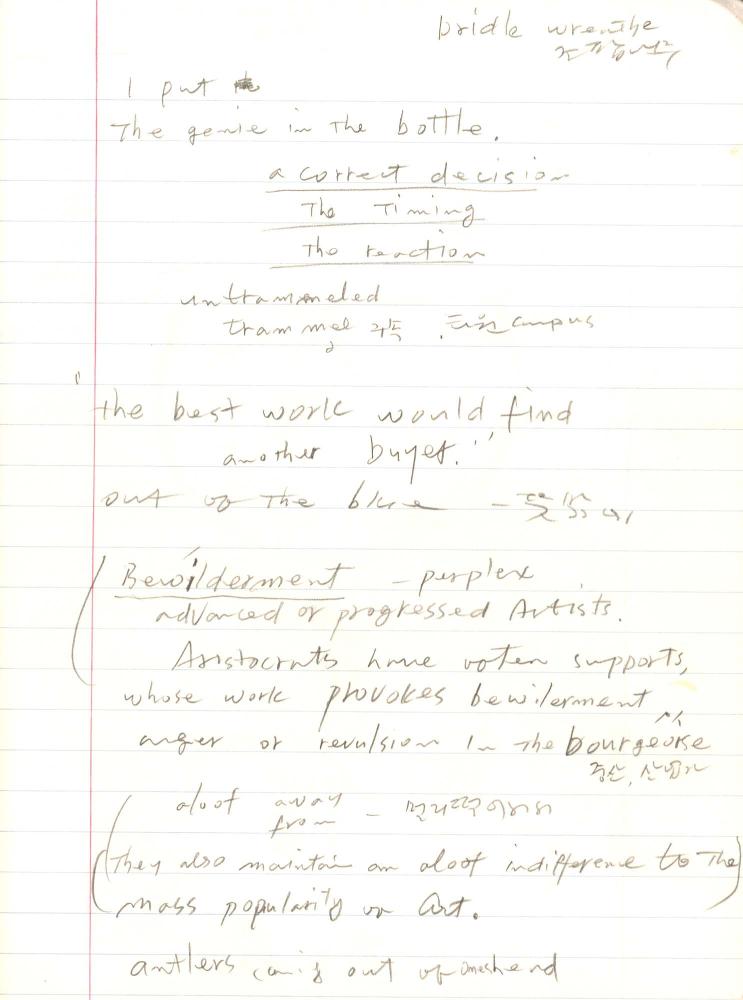 bridle wreathe
I put
The genie in the bottle.
a correct decision
The Timing
The reaction
untrammeled
trammel 구독 campus
"the best work would find
another buyer."
out of the blue -
Bewilderment - perplex
advanced or progressed Artists.
Aristocrats have often supports,
whose work provokes bewilerment
anger or revulsion in the bourgeoise
중산, 산업가
aloof away
from -
They also maintain an aloof indifference to the
mass popularity or Art.
antlers out of